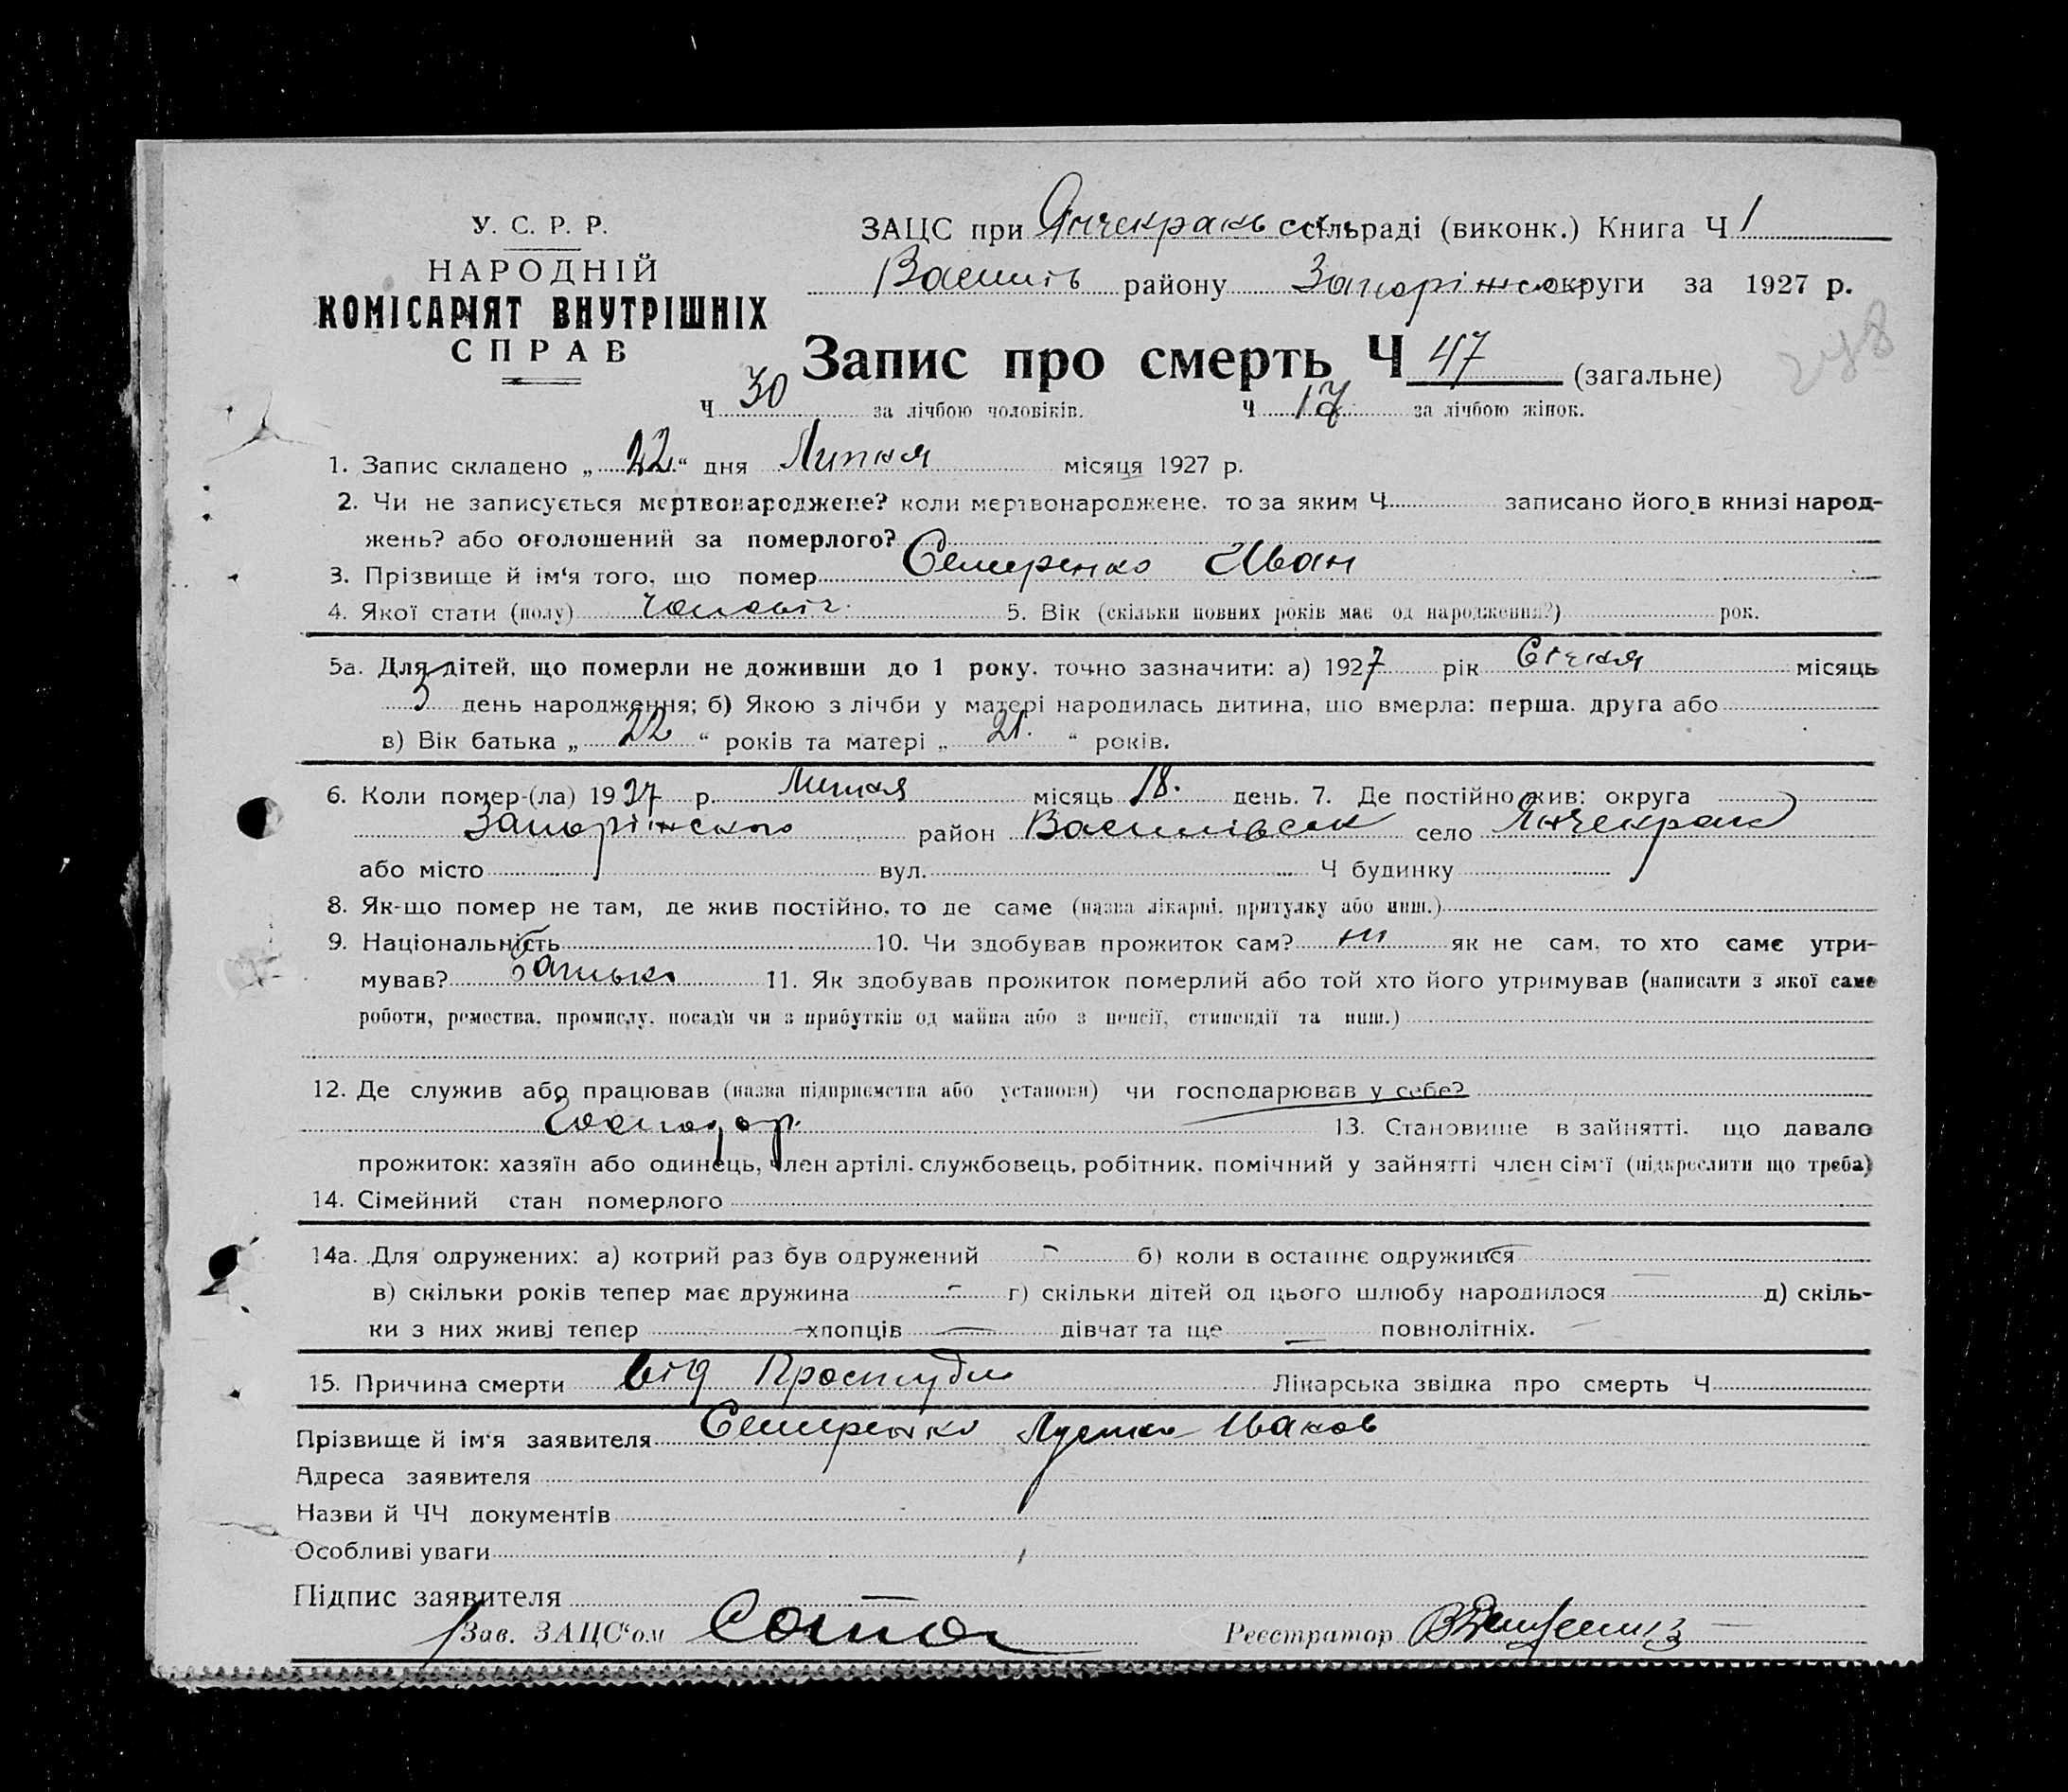 У. С. Р. Р.
НАРОДНІЙ
КОМІСАРІЯТ ВНУТРІШНІХ
СПРАВ
ЗАЦС при Янчекракськ сільраді (виконк.) Книга Ч 1
Василів району Запоріжськ округи за 1927 р.
278
Запис про смерть Ч 47 (загальне)
Ч 30 за лічбою чоловіків. Ч 17 за лічбою жінок.
1. Запис складено „ 22 “ дня Липня місяця 1927 р.
2. Чи не записується мертвонароджене? коли мертвонароджене, то за яким Ч записано його в книзі народ-
жень? або оголошений за померлого?
3. Прізвище й ім‘я того, що помер Семиренко Иван
4. Якої стати (полу) Чоловіч. 5. Вік (скільки повних років має од народження?) рок.
5а. Для дітей, що померли не доживши до 1 року, точно зазначити: а) 1927 рік Січня місяць
3 день народження; б) Якою з лічби у матері народилась дитина, що вмерла: перша, друга або
в) Вік батька „ 22 “ років та матері „ 21. “ років.
6. Коли помер-(ла) 1927 р. Липня місяць 18. день. 7. Де постійно жив: округа
Запоріжського район Василівськ село Янчекрак
або місто вул. Ч будинку
8. Як-що помер не там, де жив постійно, то де саме (назва лікарні, притулку або инш.)
9. Національність 10. Чи здобував прожиток сам? ні як не сам, то хто саме утри-
мував? батько 11. Як здобував прожиток померлий або той хто його утримував (написати з якої саме
роботи, ремества, промислу, посади чи з прибутків од майна або з пенсії, стипендії та инш.)
12. Де служив або працював (назва підприємства або установи) чи господарював у себе?
Господар. 13. Становище в зайнятті, що давало
прожиток: хазяїн або одинець, член артілі, службовець, робітник, помічний у зайнятті член сім‘ї (підкреслити що треба)
14. Сімейний стан померлого
14а. Для одружених: а) котрий раз був одружений б) коли в останнє одружився
в) скільки років тепер має дружина г) скільки дітей од цього шлюбу народилося д) скіль-
ки з них живі тепер хлопців дівчат та ще повнолітніх.
15. Причина смерти від Простуди Лікарська звідка про смерть Ч
Прізвище й ім‘я заявителя Семиренко Иванов
Адреса заявителя
Назви й ЧЧ документів
Особливі уваги
Підпис заявителя
Зав. ЗАЦС‘ом
Реєстратор